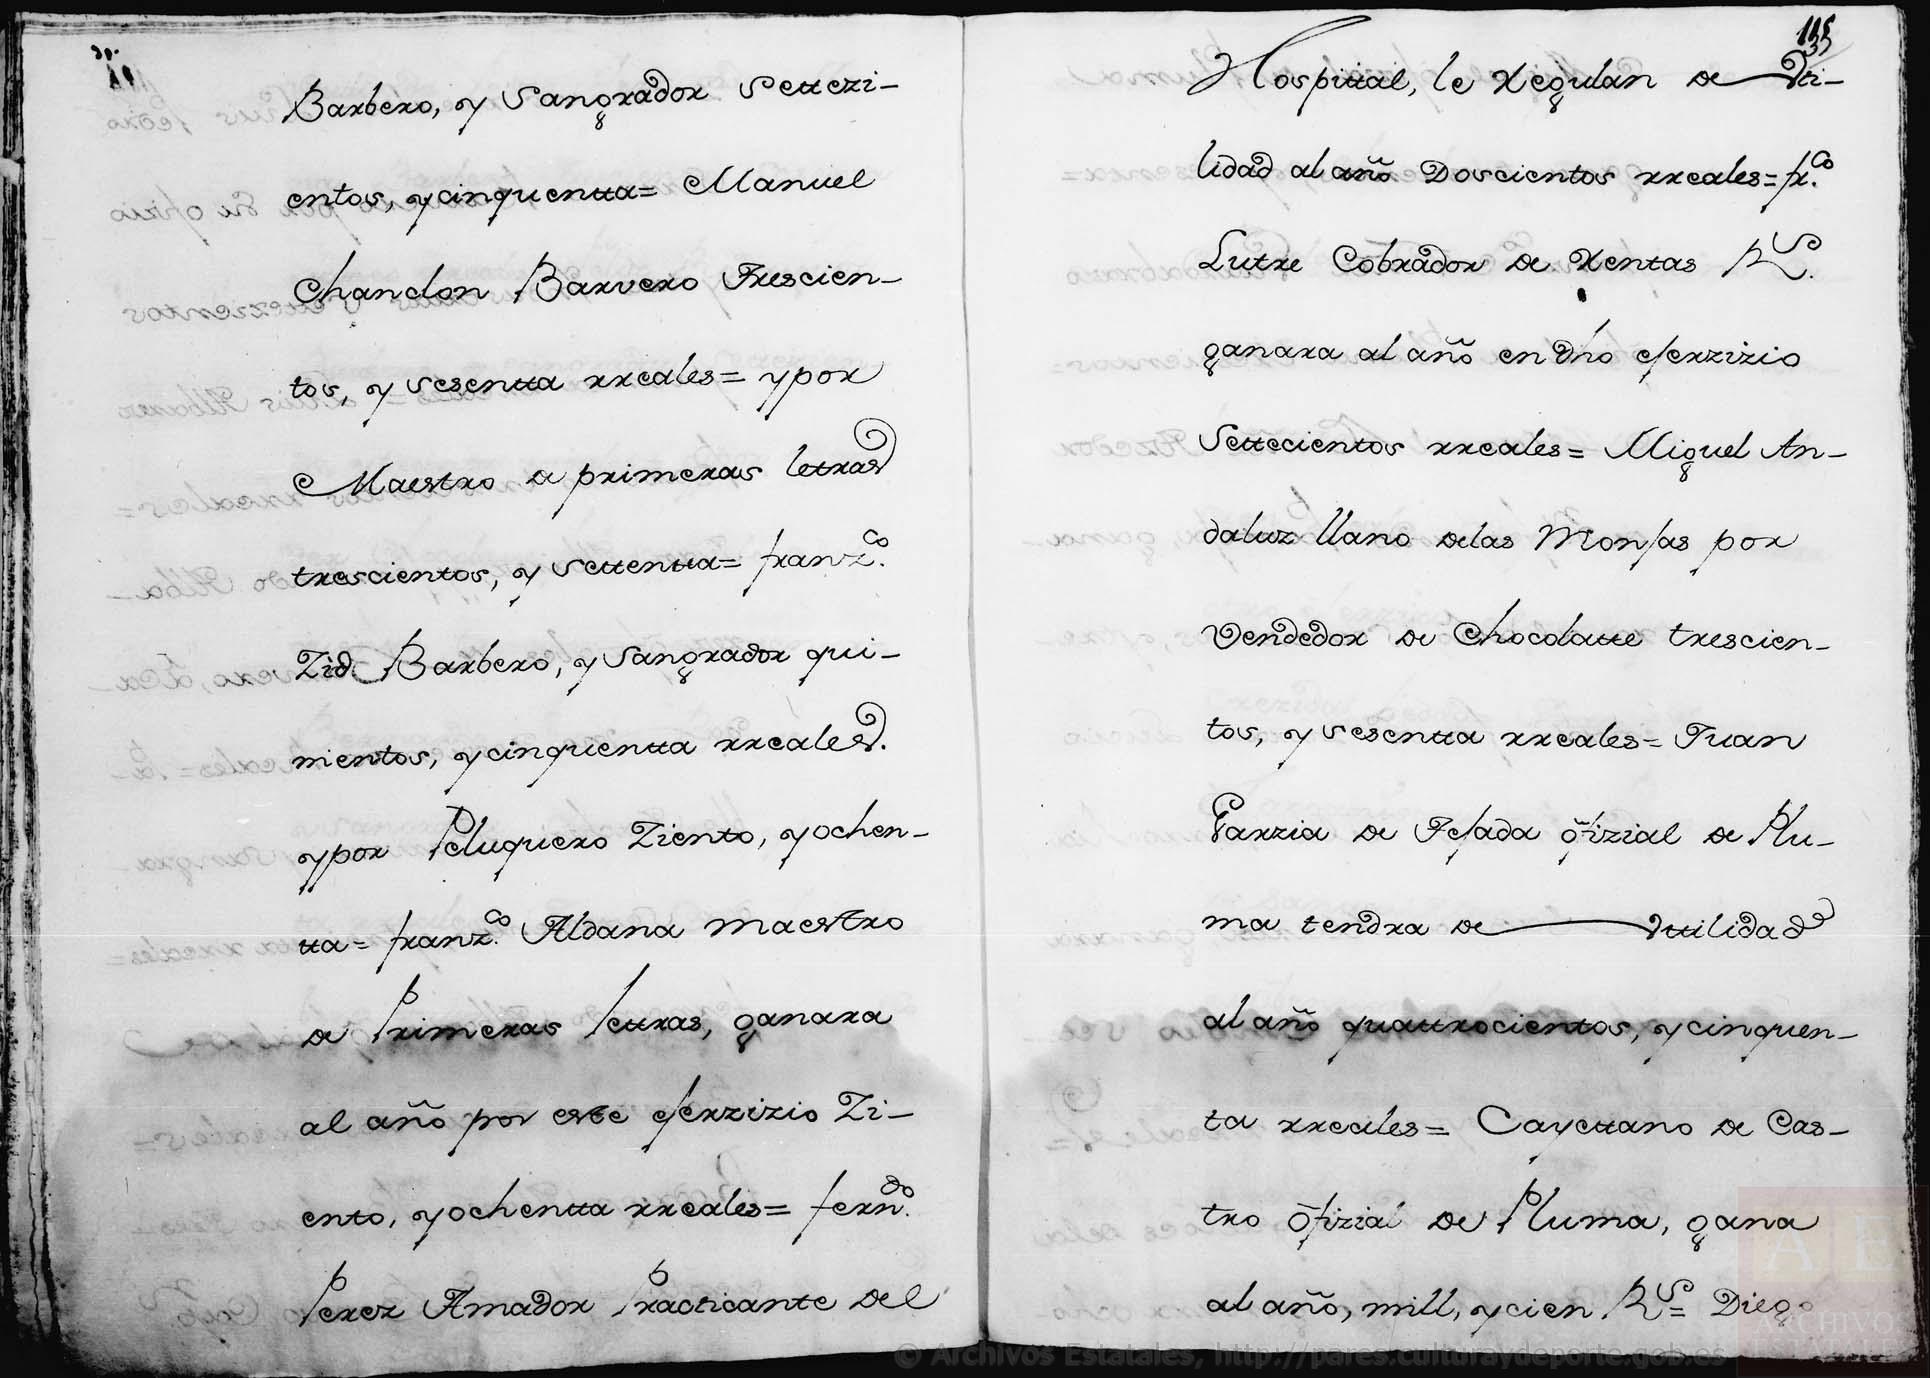 Barbero, y Sangrador Settezi-
entos, y cinquentta = Manuel
Chanclon Barvero Trescien-
tos, y sesentta rreales = y por
Maestro a primeras letras
trescientos, y settentta = franz.co
Zid Barbero, y Sangrador qui-
nientos, y cinquentta rreales.
y por Peluquero Ziento, y ochen-
tta = franz.co Aldana Maestro
a Primeras letras, ganara
al año por este ejerzizio Zi-
ento, y ochentta rreales = fern.do
Perez Amador Practicante del
115
Hospittal, le Regulan de Vti-
lidad al año Doscientos rreales = fr.co
Lutre Cobrador de Rentas R.s
ganara al año en dho ejerzizio
Settecientos rreales = Miguel An-
daluz llano de las Monjas por
Vendedor de Chocolatte trescien-
tos, y sesentta rreales = Juan
Garzia de Tejada ofizial de Plu-
ma tendra de Vttilidad
al año quattrocientos, y cinquen-
ta rreales = Cayettano de Cas-
tro ofizial de Pluma, gana
al año, mill, y cien R.s = Diego
A E
ARCHIVOS
ESTATALES
© Archivos Estatales, http://pares.culturaydeporte.gob.es